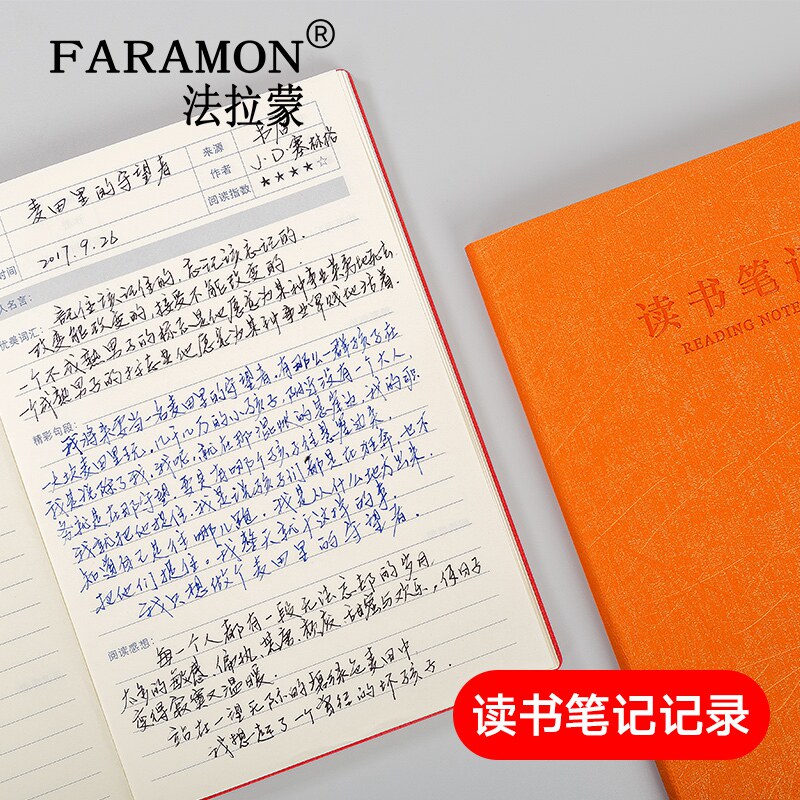 FARAMON®
法拉蒙
麦田里的守望者
来源
书店
作者
J·D·塞林格
阅读指数
★★★★☆
时间
2017.9.26
人名言:
记住该记住的,忘记该忘记的.
改变能改变的,接受不能改变的.
优美词汇:
一个不成熟男子的标志是他愿意为某种事业英勇地死去
一个成熟男子的标志是他愿意为某种事业卑贱地活着.
精彩句段:
我将来要当一名麦田里的守望者.有那么一群孩子在
一大块麦田里玩.几千几万的小孩子,附近没有一个大人,
我是说除了我.我呢,就在那混帐的悬崖边.我的职
务就是在那守望.要是有哪个孩子往悬崖边来,
我就把他捉住.我是说孩子们都是在狂奔.也不
知道自己是往哪儿跑.我是从什么地方出来
把他们捉住.我整天就干这样的事.
我只想做个麦田里的守望者.
阅读感想:
每一个人都有一段无法忘却的岁月
太多的敏感、偏执、
颓废
甜蜜与欢乐,使日子
变得寂寞又温暖.
站在一望无际的
麦田中
我想起了一个
的坏孩子.
读书笔记
READING NOTE
读书笔记记录